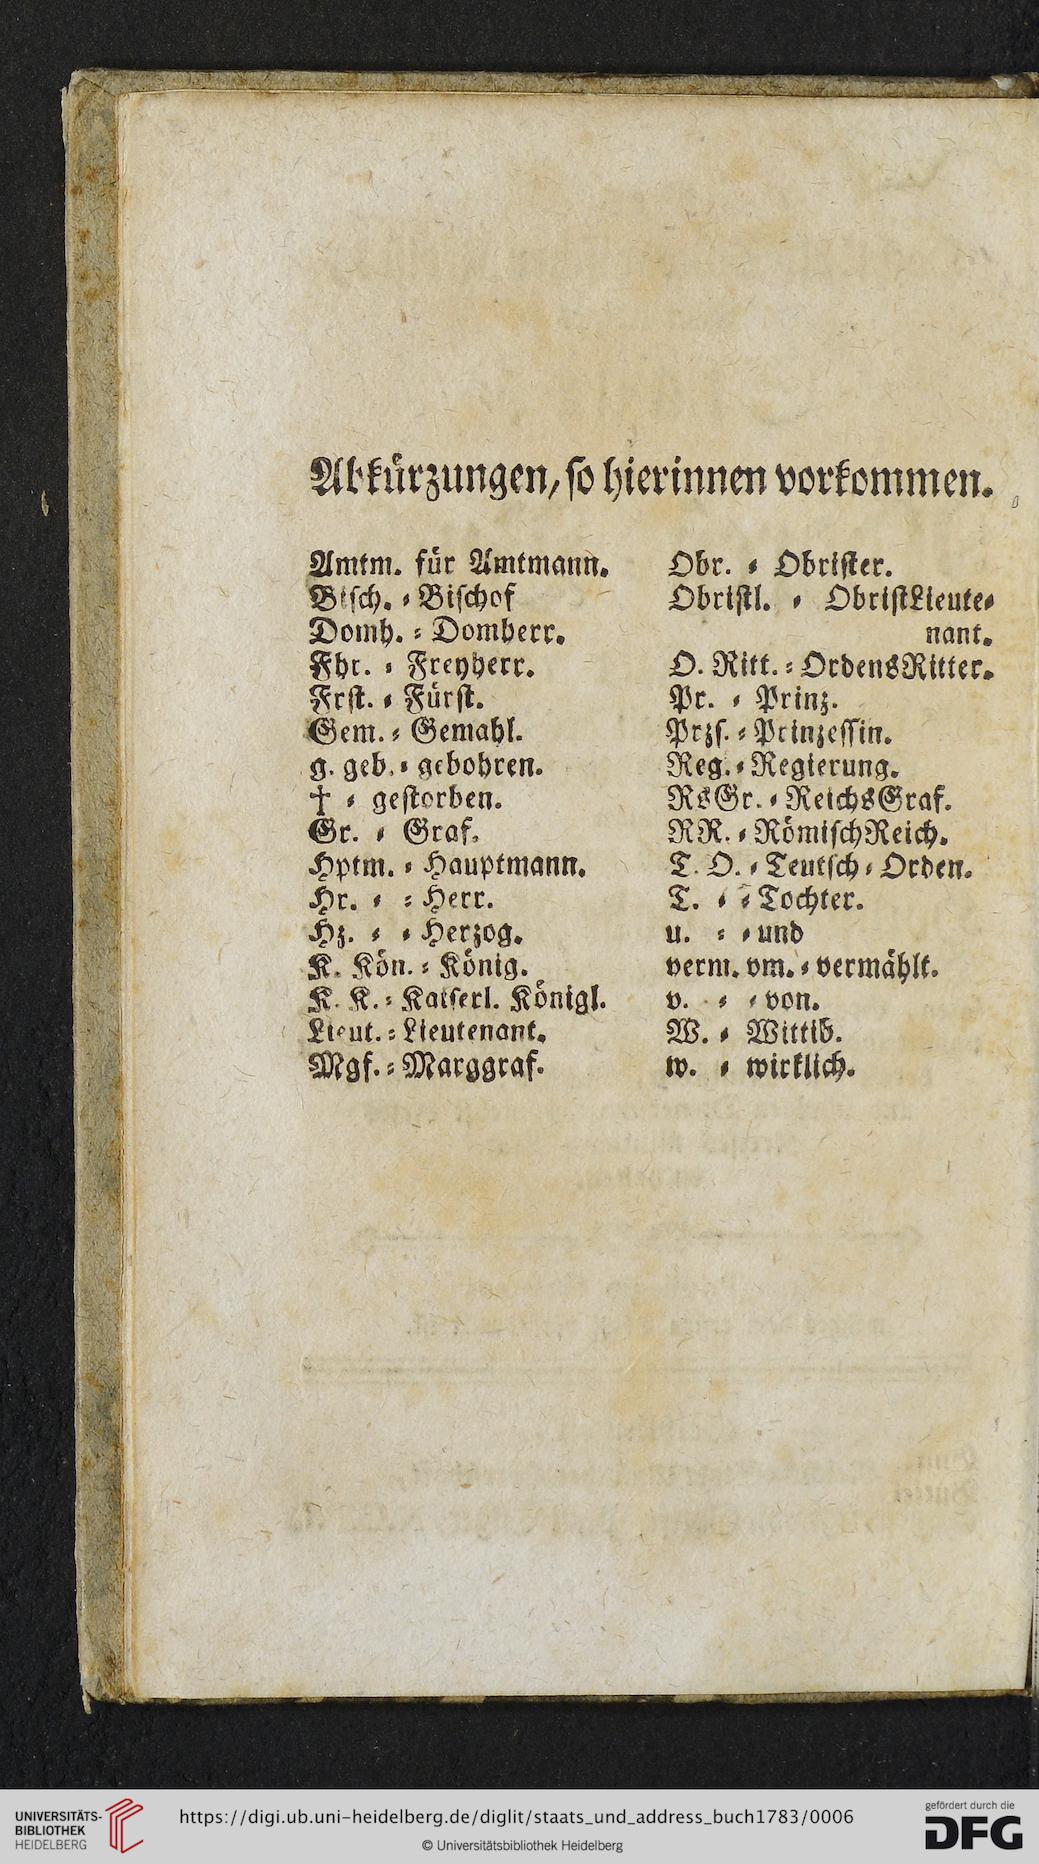 Abkürzungen, so hierinnen vorkommen.
Amtm. für Amtmann.
Bisch. ⸗ Bischof
Domh. ⸗ Domherr.
Fhr. ⸗ Freyherr.
Frst. ⸗ Fürst.
Gem. ⸗ Gemahl.
g. geb. ⸗ gebohren.
† ⸗ gestorben.
Gr. ⸗ Graf.
Hptm. ⸗ Hauptmann.
Hr. ⸗ ⸗ Herr.
Hz. ⸗ ⸗ Herzog.
K. Kön. ⸗ König.
K. K. ⸗ Kaiserl. Königl.
Lieut. ⸗ Lieutenant.
Mgf. ⸗ Marggraf.
Obr. ⸗ Obrister.
Obristl. ⸗ ObristLieute⸗
nant.
O. Ritt. ⸗ OrdensRitter.
Pr. ⸗ Prinz.
Przs. ⸗ Prinzessin.
Reg. ⸗ Regierung.
RsGr. ⸗ ReichsGraf.
RR. ⸗ RömischReich.
T. O. ⸗ Teutsch ⸗ Orden.
T. ⸗ ⸗ Tochter.
u. ⸗ ⸗ und
verm. vm. ⸗ vermählt.
v. ⸗ ⸗ von.
W. ⸗ Wittib.
w. ⸗ wirklich.
UNIVERSITÄTS-
BIBLIOTHEK
HEIDELBERG
https://digi.ub.uni-heidelberg.de/diglit/staats_und_address_buch1783/0006
© Universitätsbibliothek Heidelberg
gefördert durch die
DFG